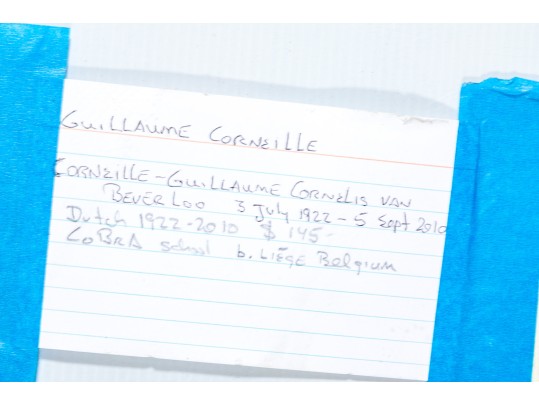 GUILLAUME CORNEILLE
CORNEILLE-GUILLAUME CORNELIS VAN
BEVERLOO 3 July 1922 - 5 Sept 2010
Dutch 1922-2010 $145-
CoBRA school b. LIÉGE Belgium